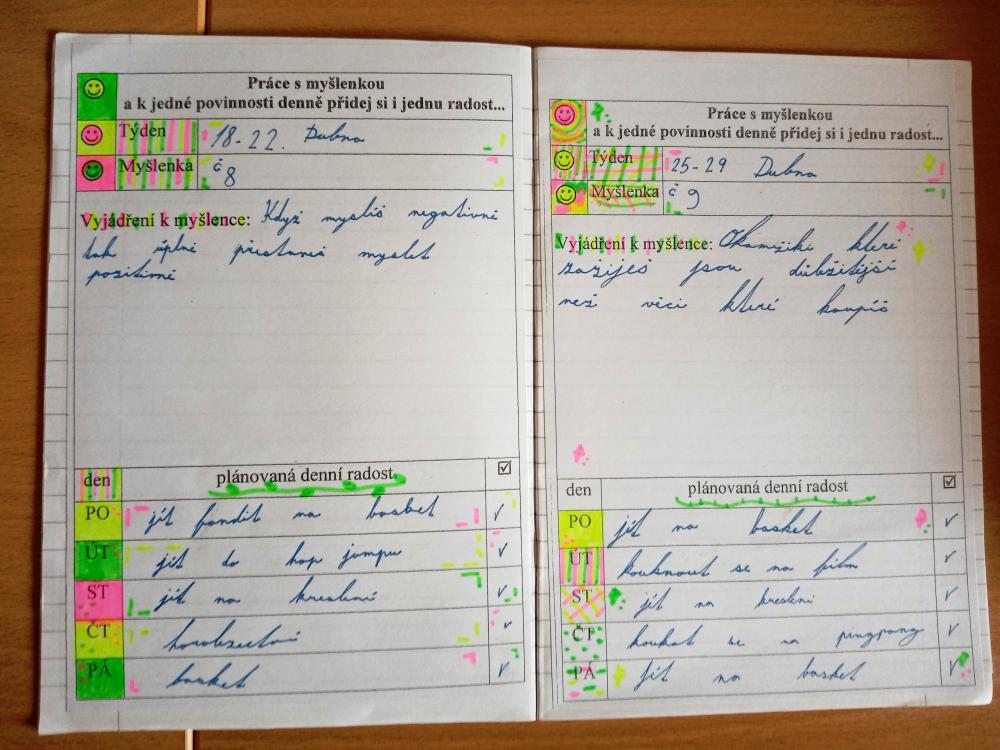 Práce s myšlenkou
a k jedné povinnosti denně přidej si i jednu radost...
Týden 18-22. Dubna
Myšlenka č 8
Vyjádření k myšlence: Když myslíš negativní
tak úplně přestaneš myslet
pozitivně
den plánovaná denní radost ☑
PO jít fandit na basket ✓
ÚT jít do hop jumpu ✓
ST jít na kreslení ✓
ČT horolezectví ✓
PÁ basket ✓
Práce s myšlenkou
a k jedné povinnosti denně přidej si i jednu radost...
Týden 25-29 Dubna
Myšlenka č 9
Vyjádření k myšlence: Okamžiki které
zažiješ jsou důležitější
než věci které koupíš
den plánovaná denní radost ☑
PO jít na basket ✓
ÚT kouknout se na film ✓
ST jít na kreslení ✓
ČT koukat se na pingpong ✓
PÁ jít na basket ✓